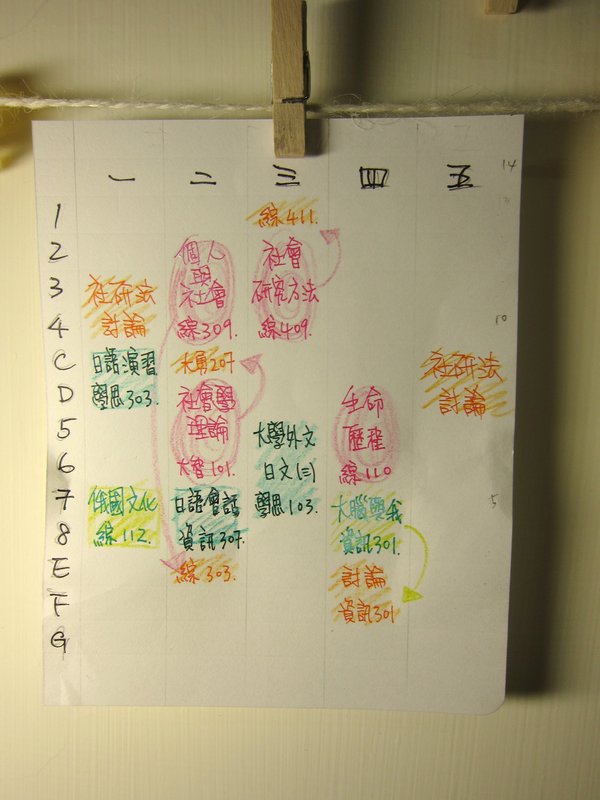 一 二 三 四 五
14
1
2
3
4
C
D
5
6
7
8
E
F
G
社研法
討論
日語演習
學思303.
俄國文化
綜112.
個人
與
社會
綜309.
大勇207
社會學
理論
大智101.
日語會話
資訊307.
綜303.
綜411.
社會
研究方法
綜409.
大學外文
日文(三)
學思103.
生命
歷程
綜110
大腦與我
資訊301.
討論
資訊301
社研法
討論
10
5